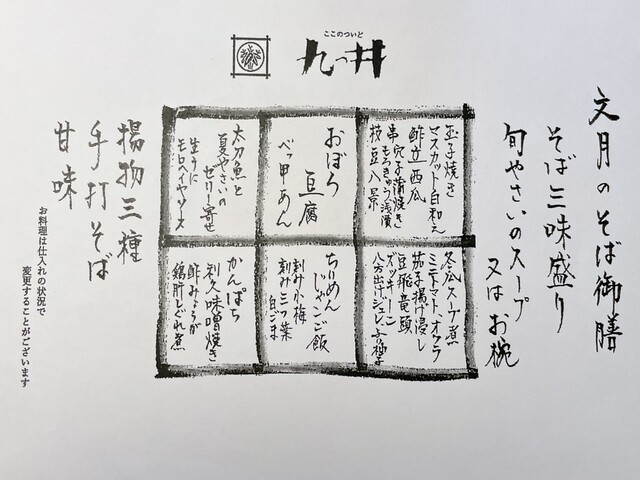 ここのついど
九つ井
文月のそば御膳
そば三味盛り
旬やさいのスープ
又はお椀
玉子焼き
マスカット白和え
酢立西瓜
串 穴子蒲焼き
もろきゅう浅漬
枝豆八景
おぼろ
豆腐
べっ甲あん
太刀魚と
夏やさいの
ゼリー寄せ
生うに
モロヘイヤソース
冬瓜スープ煮
ミニトマト オクラ
茄子揚げ浸し
豆飛竜頭
ズッキーニ
八方出汁ジュレ
ちりめん
じゃこご飯
刻み小梅
刻み三つ葉
白ごま
かんぱち
利久味噌焼き
酢みょうが
鶏肝しぐれ煮
揚物三種
手打そば
甘味
お料理は仕入れの状況で
変更することがございます